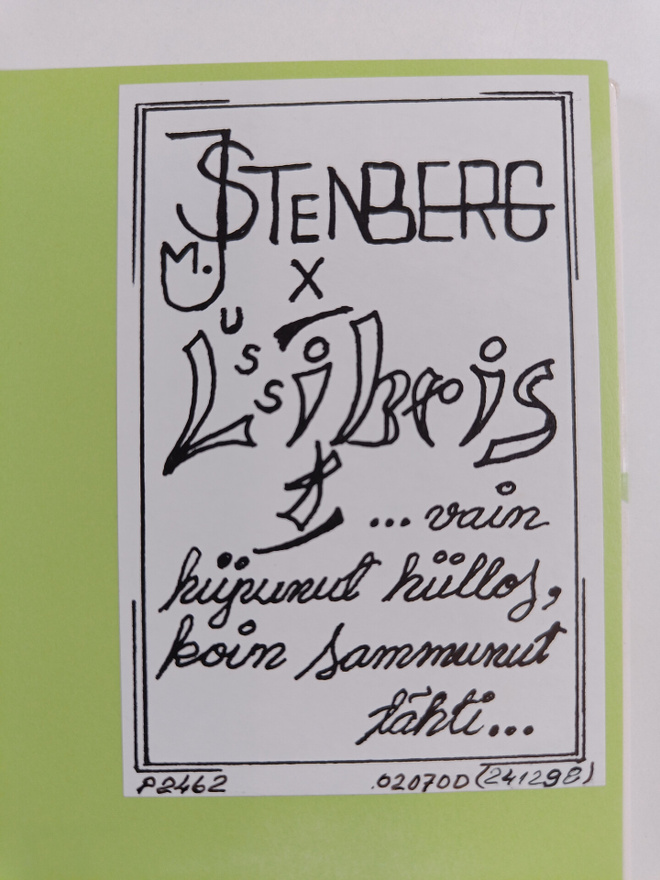 JSTENBERG
M.
X
USS
Libris
... vain
hiipunut hiillos,
koin sammunut
tähti...
P2462 020700 (241298)